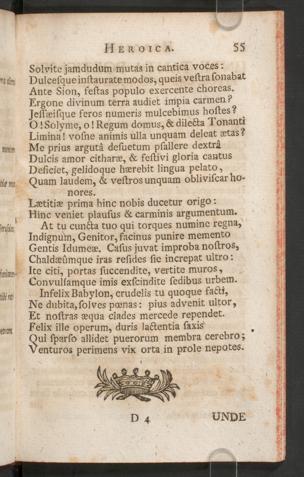 HEROICA. 55
Solvite jamdudum mutas in cantica voces:
Dulcesque instaurate modos, queis vestra sonabat
Ante Sion, festas populo exercente choreas.
Ergone divinum terra audiet impia carmen?
Jessæisque feros numeris mulcebimus hostes?
O! Solyme, o! Regum domus, & dilecta Tonanti
Limina! vosne animis ulla unquam deleat ætas?
Me prius argutâ desuetum psallere dextrâ
Dulcis amor citharæ, & festivi gloria cantus
Deficiet, gelidoque hærebit lingua pelato,
Quam laudem, & vestros unquam obliviscar ho-
nores.
Lætitiæ prima hinc nobis ducetur origo:
Hinc veniet plausus & carminis argumentum.
At tu cuncta tuo qui torques numine regna,
Indignum, Genitor, facinus punire memento
Gentis Idumeæ. Casus juvat improba nostros,
Chaldæûmque iras resides sic increpat ultro:
Ite citi, portas succendite, vertite muros,
Convulsamque imis exscindite sedibus urbem.
Infelix Babylon, crudelis tu quoque facti,
Ne dubita, solves pœnas: pius advenit ultor,
Et nostras æqua clades mercede rependet.
Felix ille operum, duris lactentia saxis
Qui sparso allidet puerorum membra cerebro;
Venturos perimens vix orta in prole nepotes.
D 4 UNDE